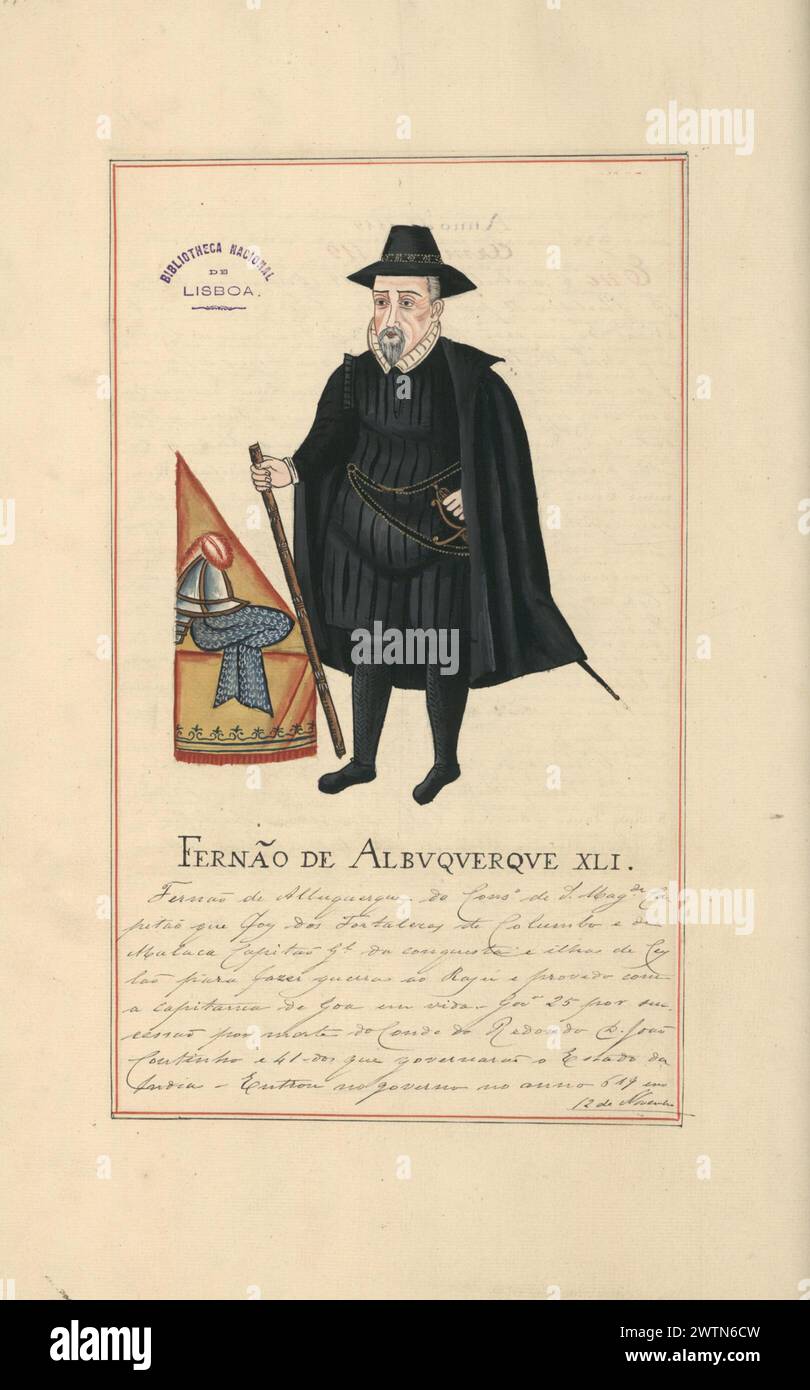 BIBLIOTHECA NACIONAL
DE
LISBOA.
FERNÃO DE ALBVQVERQVE XLI.
Fernão de Albuquerque do Consº de S. Magde Ca
petão que foy dos Fortalezas de Columbo e de
Malaca Capitão Gl da conquista e ilhas de Cey
lão para fazer guerras ao Rajú e provedo com
a capitania de Goa em vida. Govor 25 por suc
cessão por morte do Conde do Redondo D. João
Coutinho e 41 dos que governarão o Estado da
India - Entrou no governo no anno 619 em
12 de Novembro
alamy
alamy
Image ID: 2WTN6CW
www.alamy.com